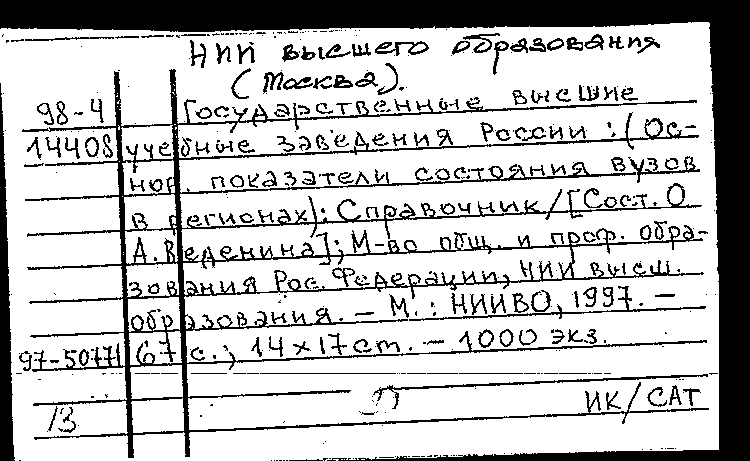 НИИ высшего образования
(Москва).
98-4 Государственные высшие
14408 учебные заведения России : (Ос-
нов. показатели состояния вузов
в регионах) : Справочник / [Сост. О
А. Веденина]; М-во общ. и проф. обра-
зования Рос. Федерации, НИИ высш.
образования. – М. : НИИВО, 1997. –
97-50771 67 с.; 14х17 см. – 1000 экз.
13 ИК/САТ